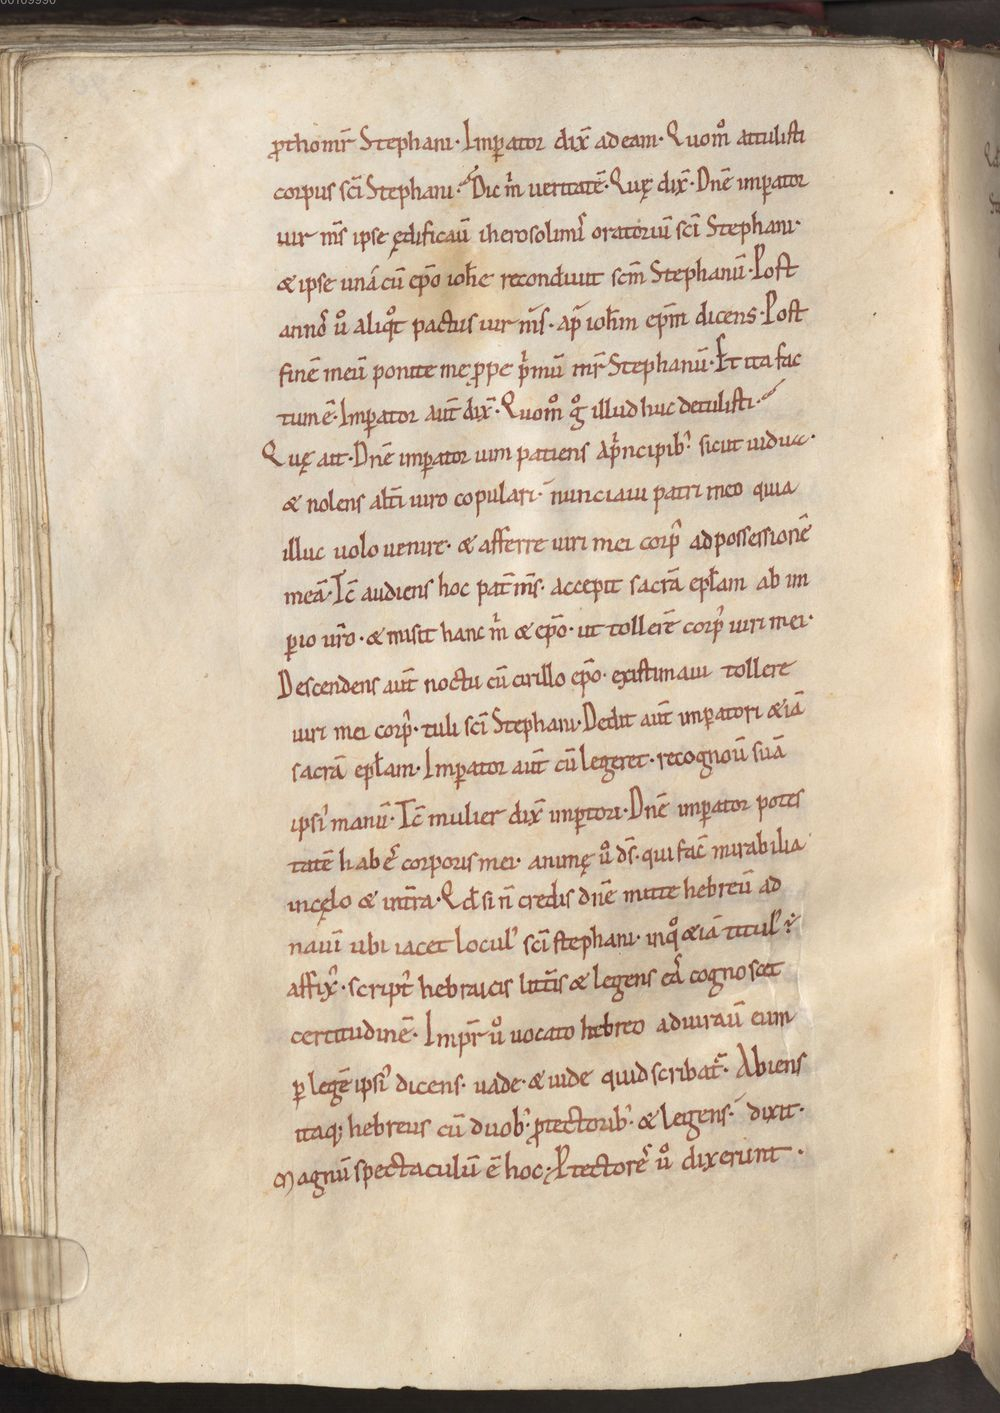 00109990
ꝓthom̄r Stephani· Imꝑator dix̄ ad eam· Quom̊ attulisti
corpus sc̄i Stephani· Dic m̄ ueritatē· Quę dix̄· Dn̄e imꝑator
uir m̄s ipse ędificauit̄ iherosolimis oratoriū sc̄i Stephani·
& ipse unā cū ep̄o ioh̄e recondiuit sc̄m Stephanū· Post
annos̄ ů aliq̊t pactus uir m̄s· ap̄ ioh̄m ep̄m dicens· Post
finē meū ponite me ꝓpe p̄mū mr̄ Stephanū· Et ita fac
tum ē· Imꝑator aut̄ dix̄· Quom̊ g̊ illud huc detulisti·
Quę ait· Dn̄e imꝑator uim patiens ap̄ncipib; sicut uidua·
& nolens alt̄i uiro copulari· nunciaui patri meo quia
illuc uolo uenire· & afferre uiri mei corp᾽ ad possessionē
meā· Tc̄ audiens hoc pat̄ m̄s· accepit sacrā ep̄lam ab im
ꝑio ur̄o· & misit hanc m̄ & ep̄o· ut tollerē corp᾽ uiri mei·
Descendens aut̄ noctu cū cirillo ep̄o· existimaui tollere
uiri mei corp᾽· tuli sc̄i Stephani· Dedit aut̄ imꝑatori & iā
sacrā ep̄lam· Imꝑator aut̄ cū legeret· recognouit̄ suā
ipsi᾽ manū· Tc̄ mulier dix̄ imꝑtori· Dn̄e imꝑator potes
tatē habes᾽ corporis mei· animę ů d̄s· qui fac̄ mirabilia
in cęlo & in t̄ra· Qd̄ si n̄ credis dn̄e mitte hebreū ad
nauī ubi iacet locul᾽ sc̄i stephani· in q̊ & iā titul᾽ ē
affix᾽· script᾽ hebraicis litt̄is & legens eā cognoscet
certitudinē· Impr̄ ů uocato hebreo adiurauit̄ eum
ꝑ legē ipsi᾽ dicens· uade· & uide quid scribat᷑· Abiens
itaq; hebreus cū duob; ꝓtectorib;· & legens· dixit·
Magnū spectaculū ē hoc; Ꝓtectores᾽ ů dixerunt·